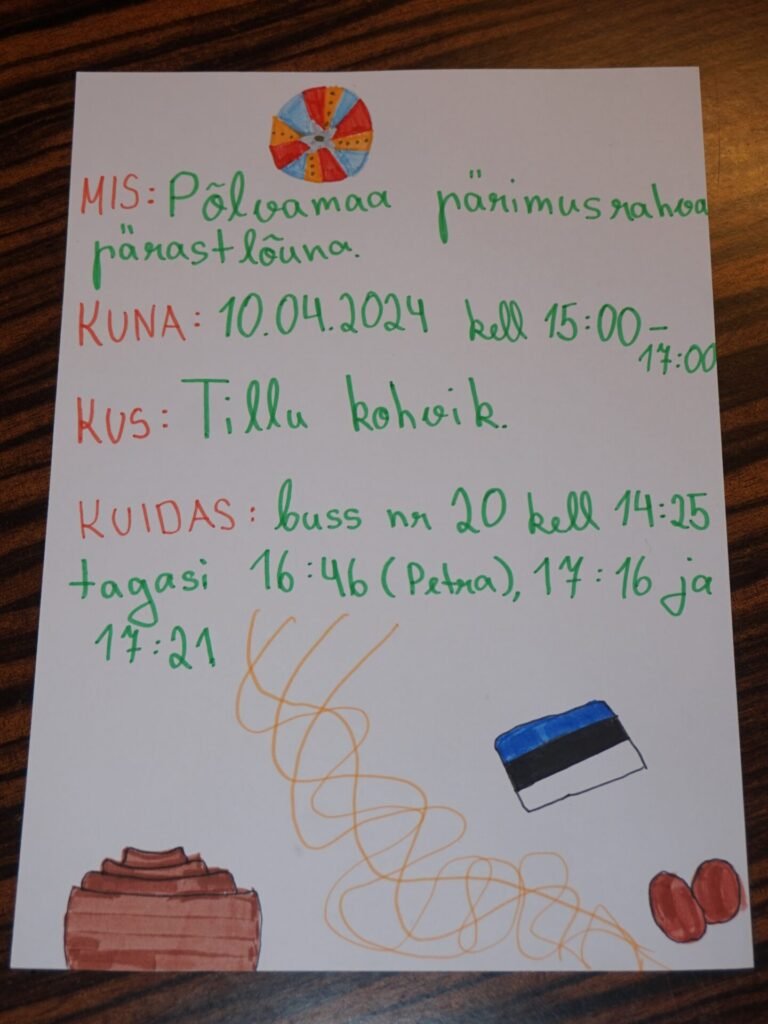 MIS: Põlvamaa pärimusrahva
pärastlõuna.
KUNA: 10.04.2024 kell 15:00-
17:00
KUS: Tillu kohvik.
KUIDAS: buss nr 20 kell 14:25
tagasi 16:46 (Petra), 17:16 ja
17:21